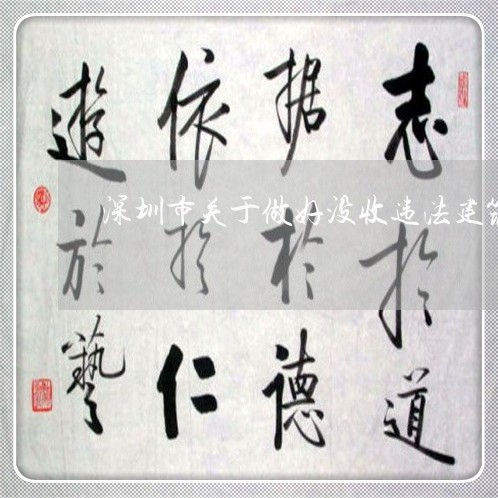 志於道
据於德
依於仁
遊於藝
深圳市关于做好没收违法建